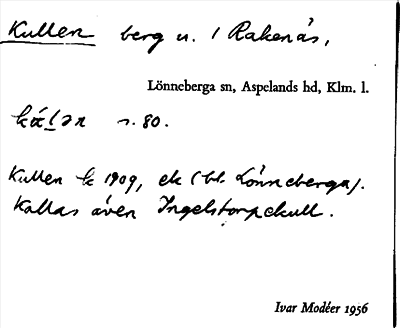 Kullen berg u. / Rakenäs,
Lönneberga sn, Aspelands hd, Klm. l.
s. 80.
Kullen k 1909, ek (bl. Lönneberga).
Kallas även Ingelstorpekull.
Ivar Modéer 1956